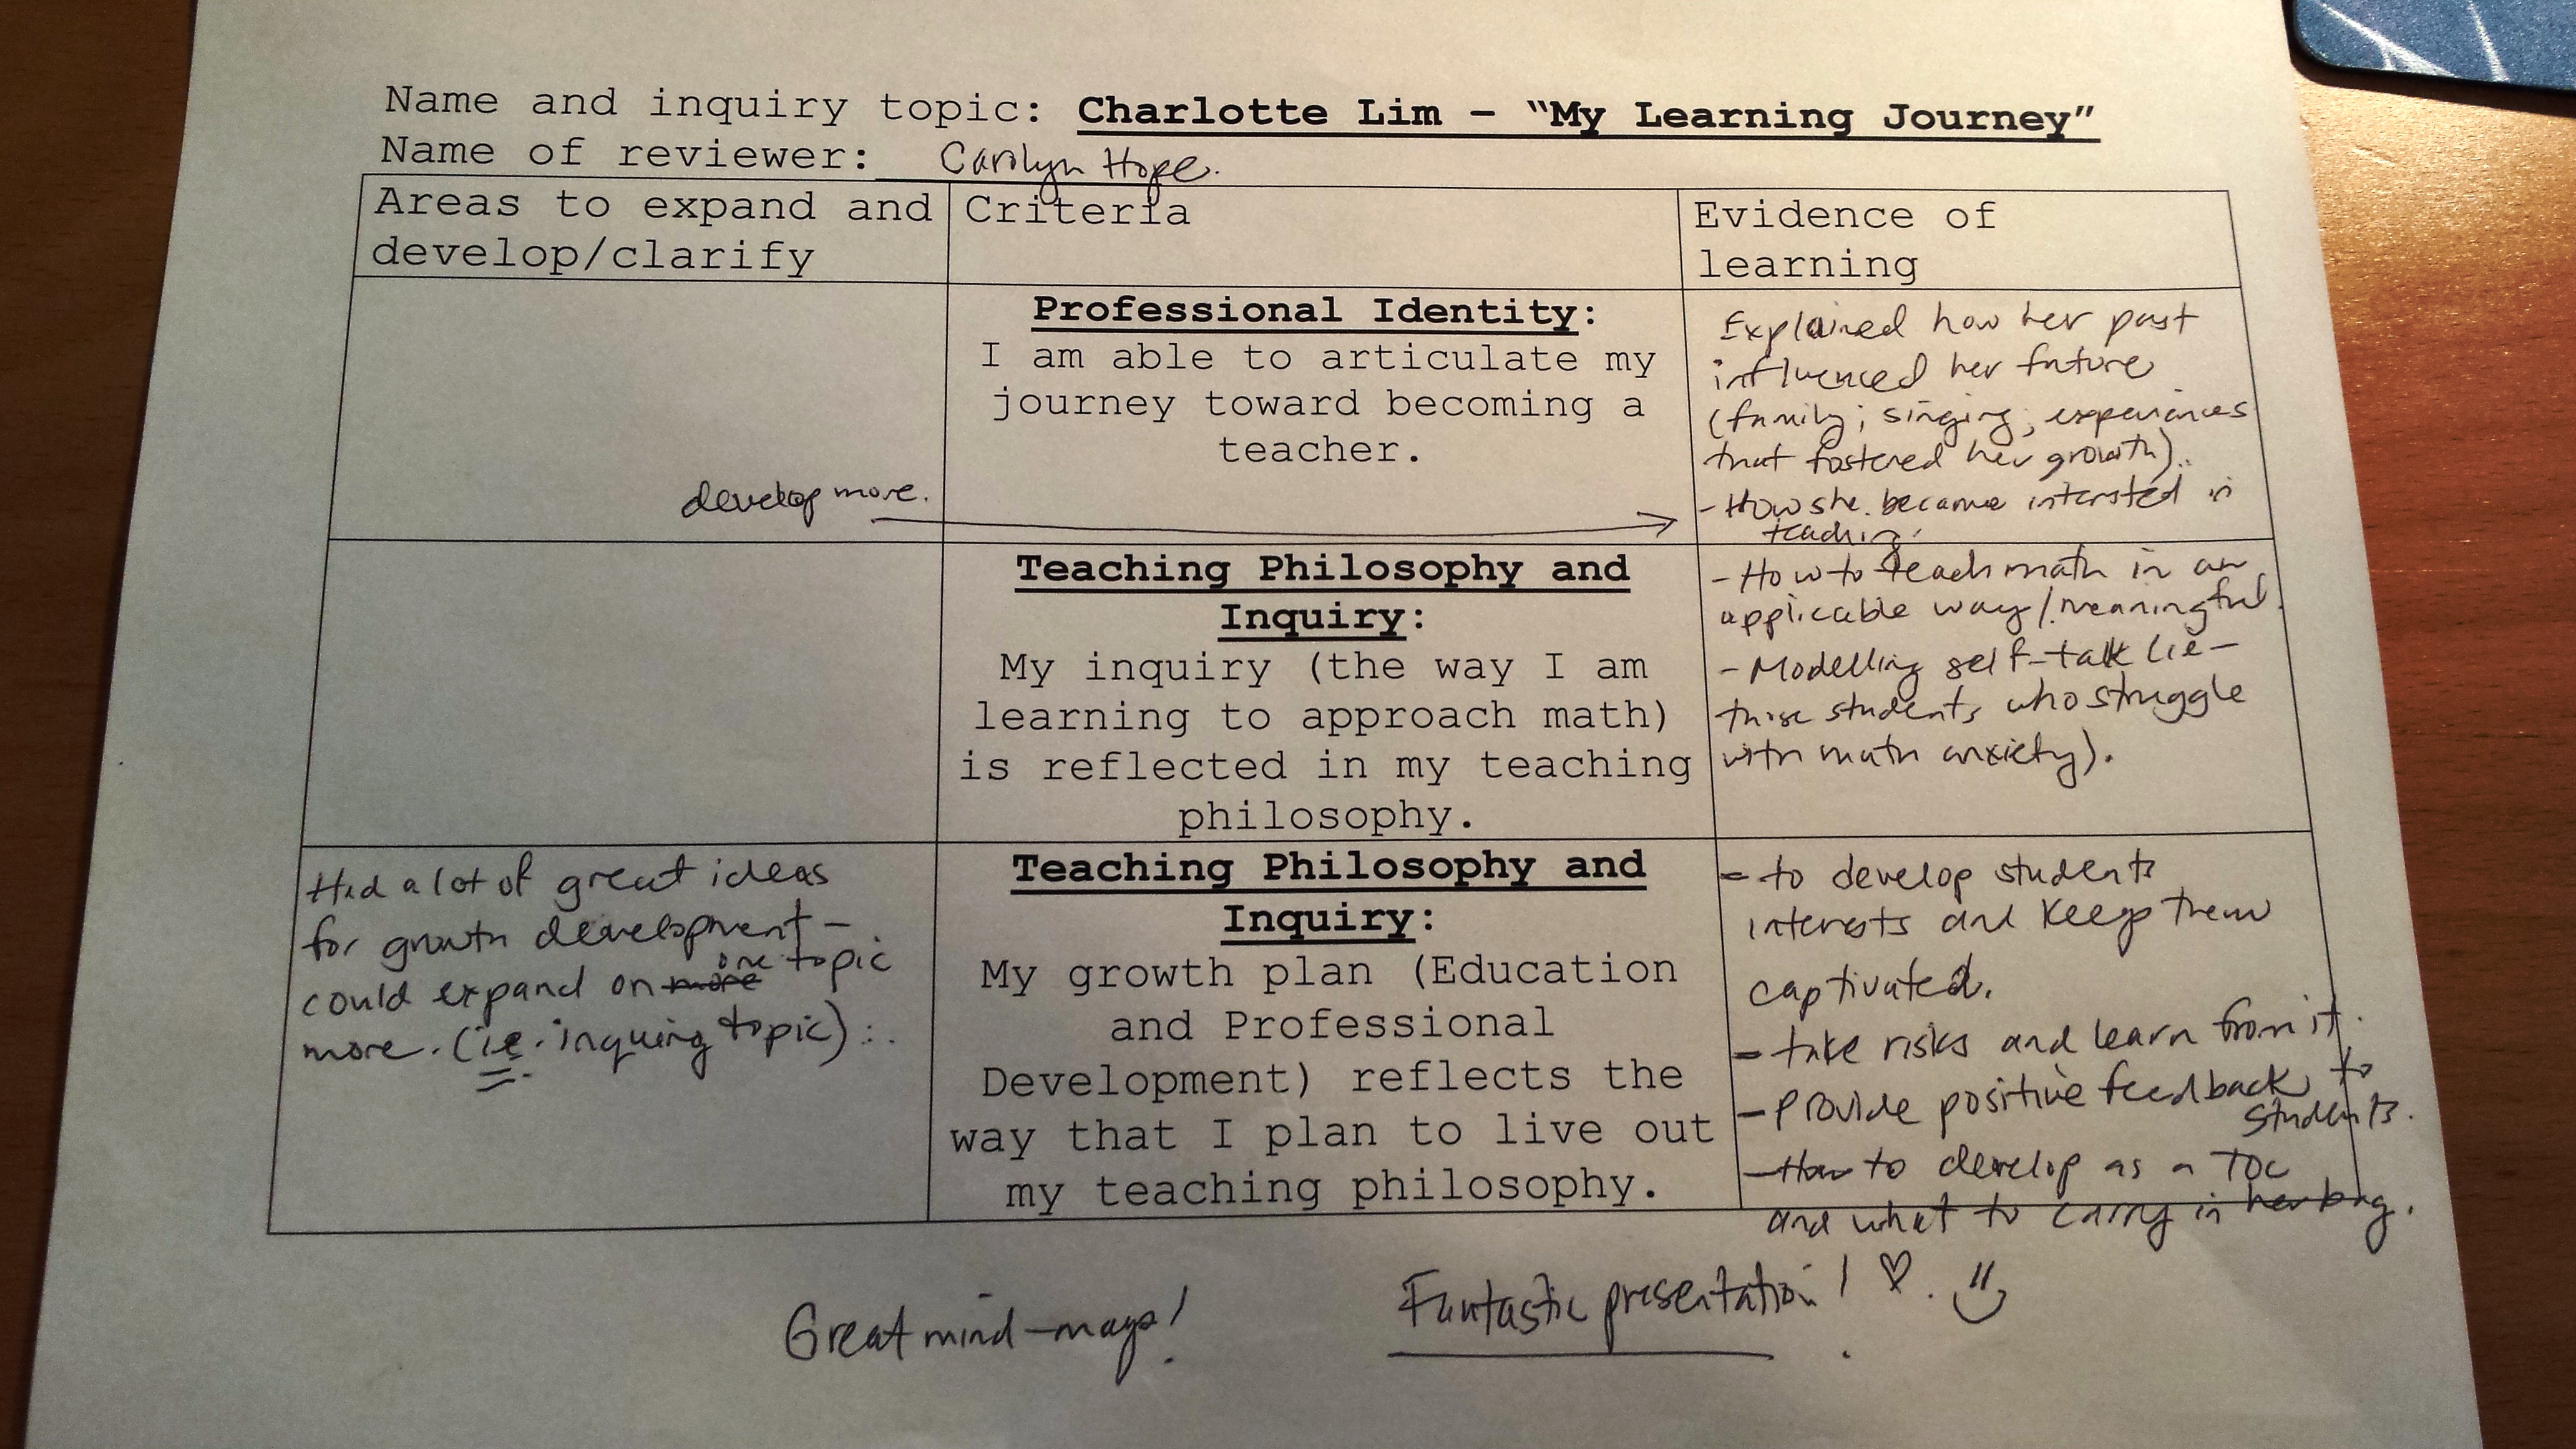 Name and inquiry topic: Charlotte Lim – “My Learning Journey”
Name of reviewer: Carolyn Hope.
Areas to expand and
develop/clarify
Criteria
Evidence of
learning
develop more.
Professional Identity:
I am able to articulate my
journey toward becoming a
teacher.
Explained how her past
influenced her future
(family; singing; experiences
that fostered her growth)..
- How she. became intersted in
teaching.
Teaching Philosophy and
Inquiry:
My inquiry (the way I am
learning to approach math)
is reflected in my teaching
philosophy.
- How to teach math in an
applicable way/meaningful.
- Modelling self-talk (ie-
those students who struggle
with math anxiety).
Had a lot of great ideas
for growth development -
could expand on more one topic
more. (ie. inquiring topic)...
Teaching Philosophy and
Inquiry:
My growth plan (Education
and Professional
Development) reflects the
way that I plan to live out
my teaching philosophy.
- to develop students
interests and keep them
captivated.
- take risks and learn from it.
- Provide positive feedback to
students.
- How to develop as a TOC
and what to carry in her bag.
Great mind-maps!
Fantastic presentation! ♡.